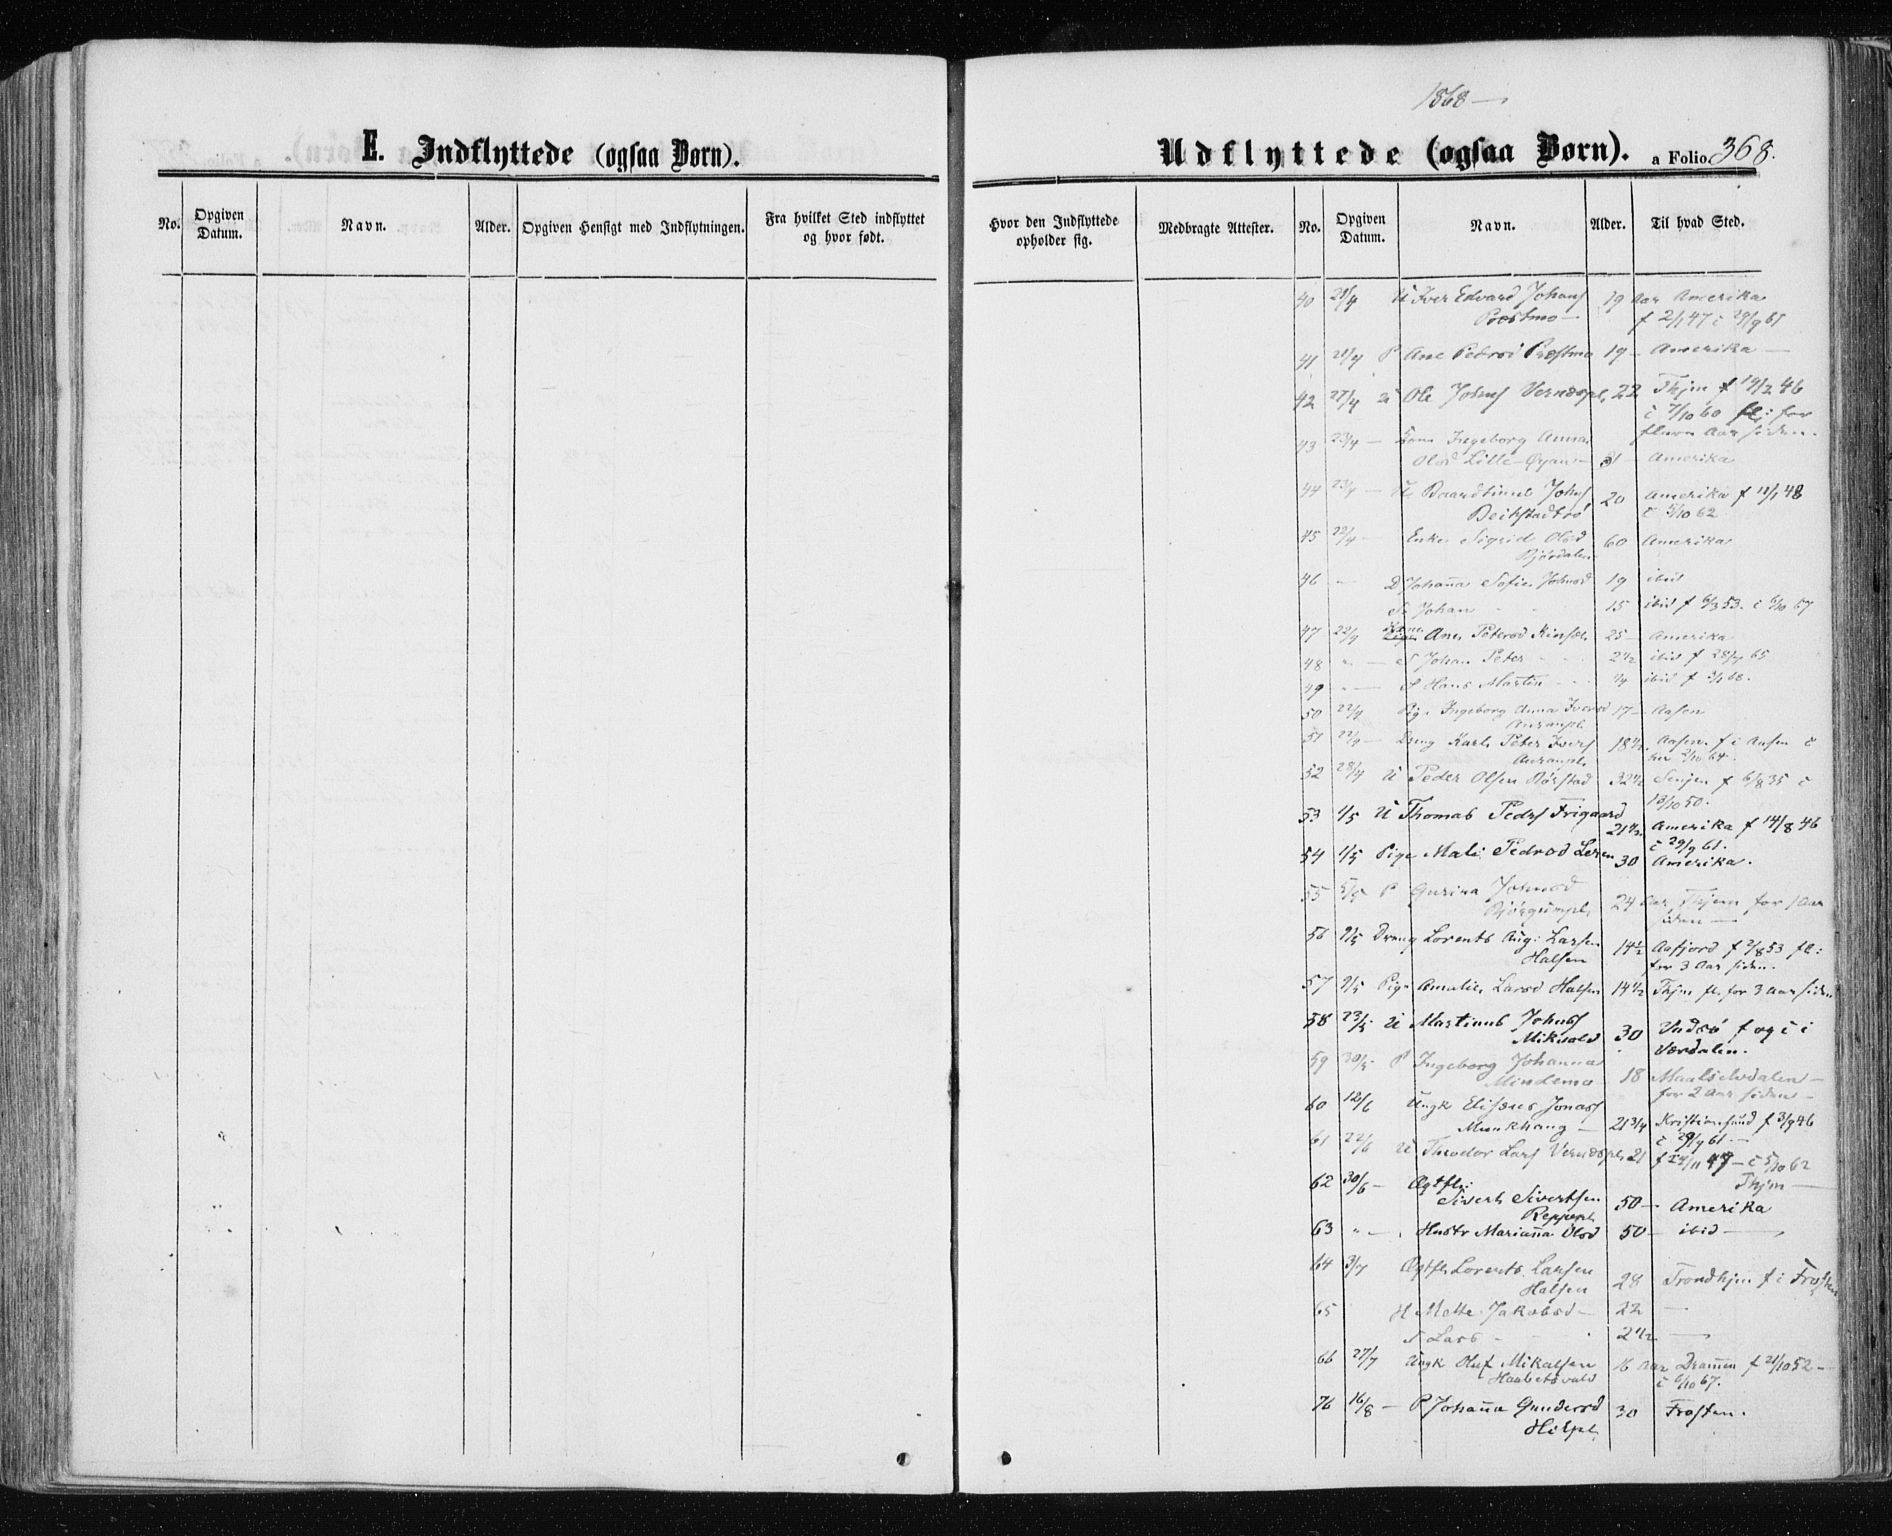 1868 —
E. Indflyttede (ogsaa Børn).
Udflyttede (ogsaa Børn). a Folio 368.
No. Opgiven Datum. Navn. Alder. Opgiven Hensigt med Indflytningen. Fra hvilket Sted indflyttet og hvor født.
Hvor den Indflyttede opholder sig. Medbragte Attester. No. Opgiven Datum. Navn. Alder. Til hvad Sted.
40 U Iver Edvard Johans 19 Aar Amerika
Præstmo — f 2/1 47 c 29/9 61
41 P Ane Pedersd Præstmo 19 — Amerika —
42 27/4 U Ole Johns Værdspl. 22 Thjm f 19/2 46
c 7/10 60 fl: for
flere Aar siden.
43 23/4 — Ingeborg Anna
Olsd Lille-Øyan — 31 Amerika
44 23/4 — U Johns 20 Amerika f 11/1 48
c 5/10 62
45 22/4 — Enke Sigrid Olsd 60 Amerika
Bjørdalen
46 " D Johanna Sofie Johnsd 19 ibid
S Johan 15 ibid f 6/3 53. c 6/10 67
47 22/4 Ane Petersd 25 — Amerika
48 " — S Johan Peter 2 1/2 ibid f 65
49 " — S Hans Martin 1/4 ibid f 68.
50 22/4 Pige Ingeborg Anna Iversd 17 — Aasen
51 22/4 — Dreng Karl Peter Ivers 18 1/2 Aasen. f i Aasen c
her 2/10 64.
52 28/4 U Peder Olsen Rørstad 32 1/2 Senjen f 6/8 35 c
13/10 50.
53 1/5 U Thomas Peders Trigaard
21 1/2 Amerika f 14/8 46
c 29/9 61.
54 1/5 Pige Mali Pedersd 30 Amerika.
55 5/5 P Gurina Johnsd
24 Aar Thjem for 1 Aar
siden —
56 9/5 Dreng Lorents Aug: Larsen 14 1/2 Aafjord f 2/8 53 fl:
Halsen for 3 Aar siden.
57 9/5 Pige Amalie Larsd Halsen 14 1/2 Thjm fl. for 3 Aar siden
58 23/5 U Martinus Johns 30 Vadsø f og c i
Mikvold Værdalen.
59 30/5 P Ingeborg Johanna
Mindemo 18 Maalselvdalen —
for 2 Aar siden —
60 12/6 Ungk Elisæus Jonas
Munkhaug — 21 3/4 Kristiansund f 3/9 46
c 29/9 61. —
61 22/6 U Theodor Lars Værdspl. 21 f 24/11 47 — c 5/10 62
Thjm —
62 30/6 — Ægtfl:
Sivert Sivertsen 50 — Amerika
63 " — Hustr Marianna Olsd 50 — ibid —
64 3/7 Ægtfl. Lorents Larsen
Halsen 28 Trondhjem f i Frosten
65 H Mette Jakobsd — 22 —
S Lars — 2 1/2 —
66 27/7 Ungk Oluf Mikalsen 16 Aar Dramen f 21/10 52 —
Haabetsvald c 6/10 67.
76 16/8 — P Johanna Gundersd 30 Frosten.